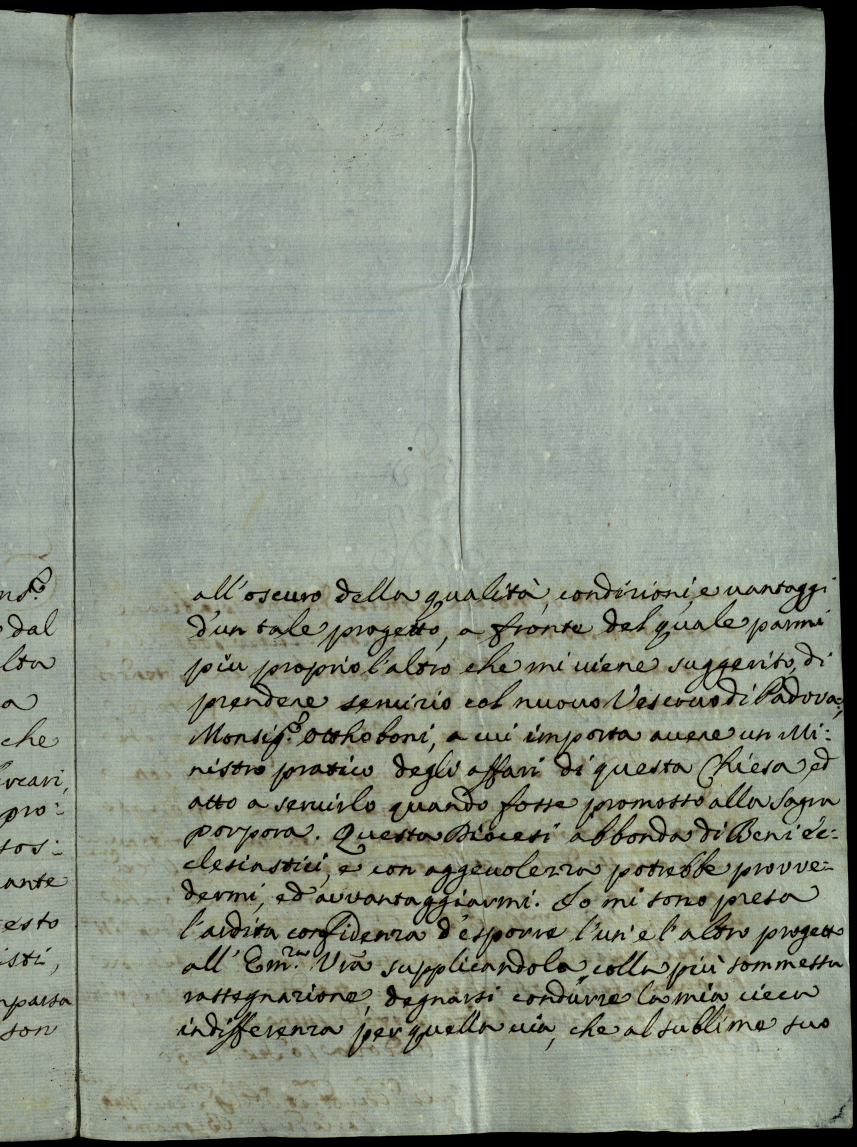 ns.ʳᵉ
dal
lta
a
che
rcari,
pro:
sos:
ante
esto
isti,
mparsa
son
all'oscuro della qualità, condizioni, e vantaggi
d'un tale progetto, a fronte del quale parmi
più proprio l'altro che mi viene suggerito, di
prendere servizio col nuovo Vescovo di Padova,
Monsig.ʳ Otthoboni, a cui importa avere un Mi:
nistro pratico degli affari di questa Chiesa ed
atto a servirlo quando fosse promosso alla Sagra
porpora. Questa Diocesi abbonda di Beni éc:
clesiastici, e con aggevolezza potrebbe provve:
dermi, ed avvantaggiarmi. Io mi sono presa
l'ardita confidenza d'esporre l'un' e l'altro progetto
all'Em.ᶻᵃ Vrã supplicandola colla più sommessa
rassegnazione, degnarsi condurre la mia cieca
indifferenza per quella via, che al sublime suo